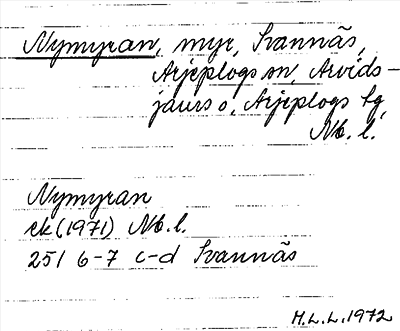 Nymyran, myr, Svannäs,
Arjeplogs sn, Arvids-
jaurs o. Arjeplogs tg,
Nb. l.
Nymyran
ek (1971) Nb. l.
251 6-7 c-d Svannäs
H.L.L. 1972